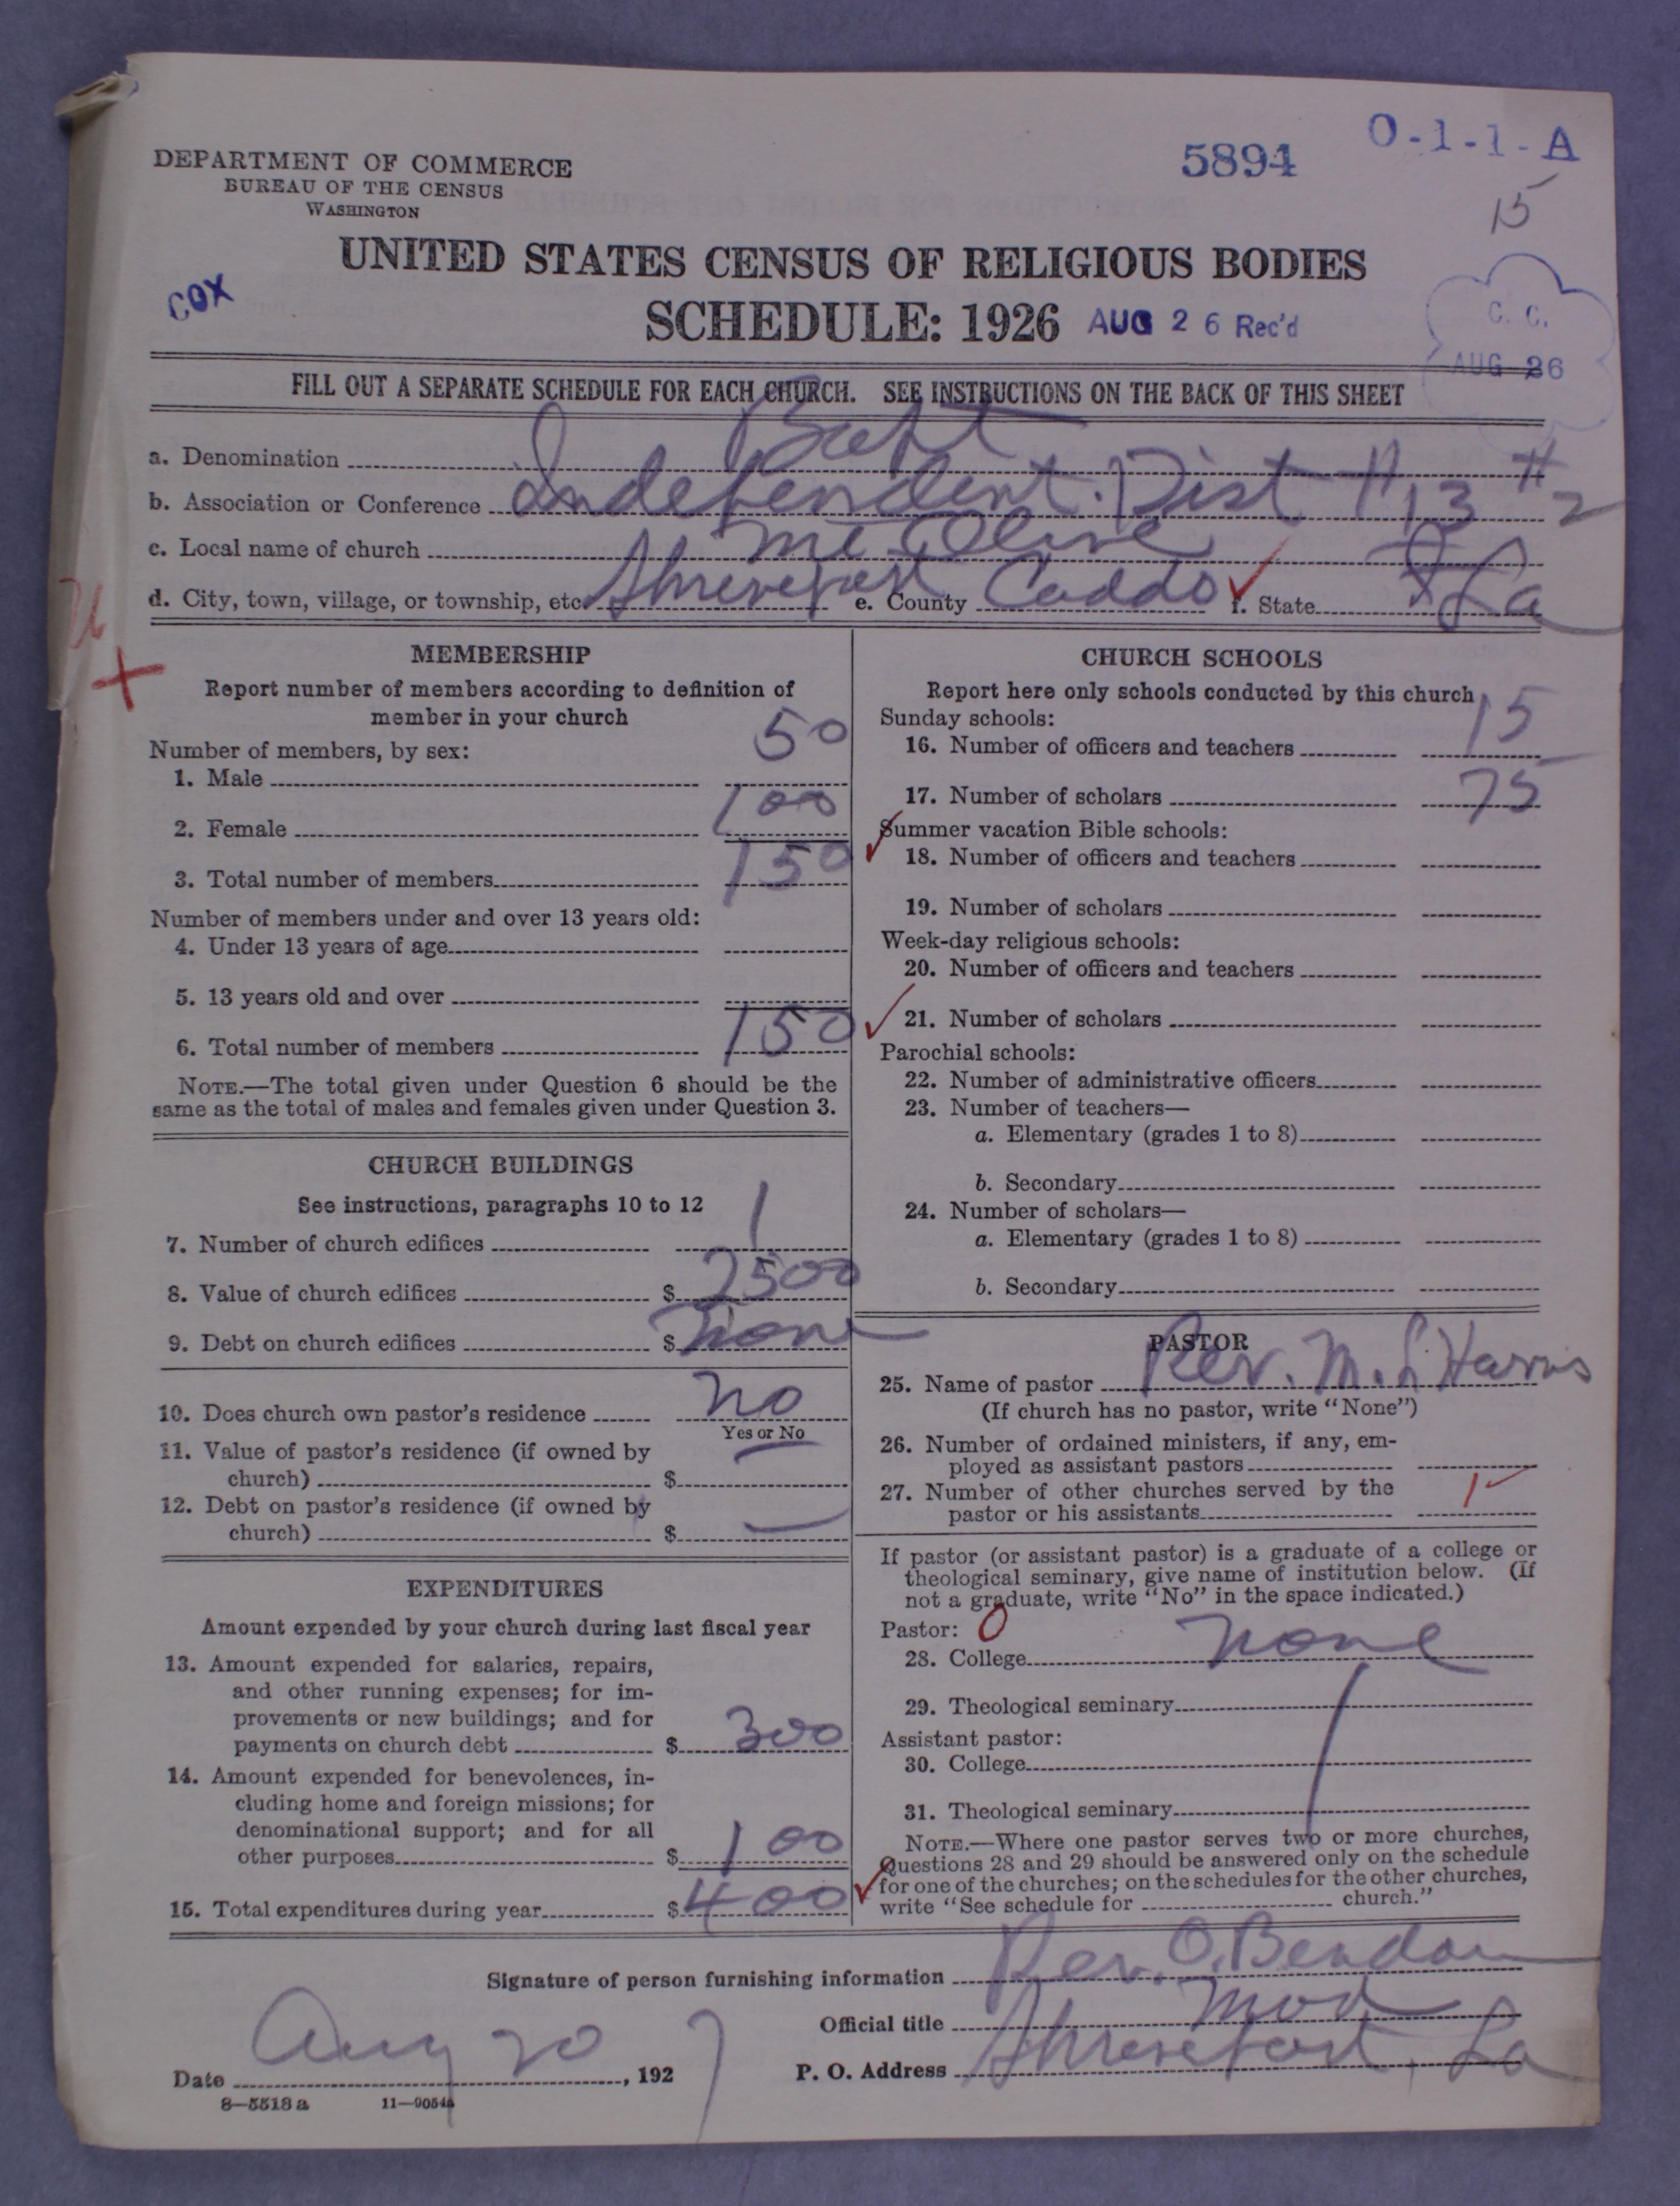 DEPARTMENT OF COMMERCE
BUREAU OF THE CENSUS
WASHINGTON
5894
O-1-1-A
15
UNITED STATES CENSUS OF RELIGIOUS BODIES
COX
SCHEDULE: 1926 AUG 26 Rec'd
C. C.
AUG 26
FILL OUT A SEPARATE SCHEDULE FOR EACH CHURCH. SEE INSTRUCTIONS ON THE BACK OF THIS SHEET
a. Denomination Bapt
b. Association or Conference Independent. Dist # 13 #2
c. Local name of church Mt Olive
d. City, town, village, or township, etc. Shreveport e. County Caddo f. State La
MEMBERSHIP
Report number of members according to definition of
member in your church
Number of members, by sex:
1. Male 50
2. Female 100
3. Total number of members 150
Number of members under and over 13 years old:
4. Under 13 years of age
5. 13 years old and over
6. Total number of members 150
NOTE.—The total given under Question 6 should be the
same as the total of males and females given under Question 3.
CHURCH BUILDINGS
See instructions, paragraphs 10 to 12
7. Number of church edifices 1
8. Value of church edifices $ 2500
9. Debt on church edifices $ None
10. Does church own pastor's residence no
Yes or No
11. Value of pastor's residence (if owned by
church) $ —
12. Debt on pastor's residence (if owned by
church) $ —
EXPENDITURES
Amount expended by your church during last fiscal year
13. Amount expended for salaries, repairs,
and other running expenses; for im-
provements or new buildings; and for
payments on church debt $ 300
14. Amount expended for benevolences, in-
cluding home and foreign missions; for
denominational support; and for all
other purposes $ 100
15. Total expenditures during year $ 400
CHURCH SCHOOLS
Report here only schools conducted by this church
Sunday schools:
16. Number of officers and teachers 15
17. Number of scholars 75
Summer vacation Bible schools:
18. Number of officers and teachers
19. Number of scholars
Week-day religious schools:
20. Number of officers and teachers
21. Number of scholars
Parochial schools:
22. Number of administrative officers
23. Number of teachers—
a. Elementary (grades 1 to 8)
b. Secondary
24. Number of scholars—
a. Elementary (grades 1 to 8)
b. Secondary
PASTOR
25. Name of pastor Rev. M. L Harris
(If church has no pastor, write "None")
26. Number of ordained ministers, if any, em-
ployed as assistant pastors
27. Number of other churches served by the
pastor or his assistants 1
If pastor (or assistant pastor) is a graduate of a college or
theological seminary, give name of institution below. (If
not a graduate, write "No" in the space indicated.)
Pastor: 0
28. College none
29. Theological seminary
Assistant pastor:
30. College
31. Theological seminary
NOTE.—Where one pastor serves two or more churches,
Questions 28 and 29 should be answered only on the schedule
for one of the churches; on the schedules for the other churches,
write "See schedule for church."
Signature of person furnishing information Rev. O.
Official title Mod
Date Aug 20, 1927 P. O. Address Shreveport, La
8—5518a 11—9054a